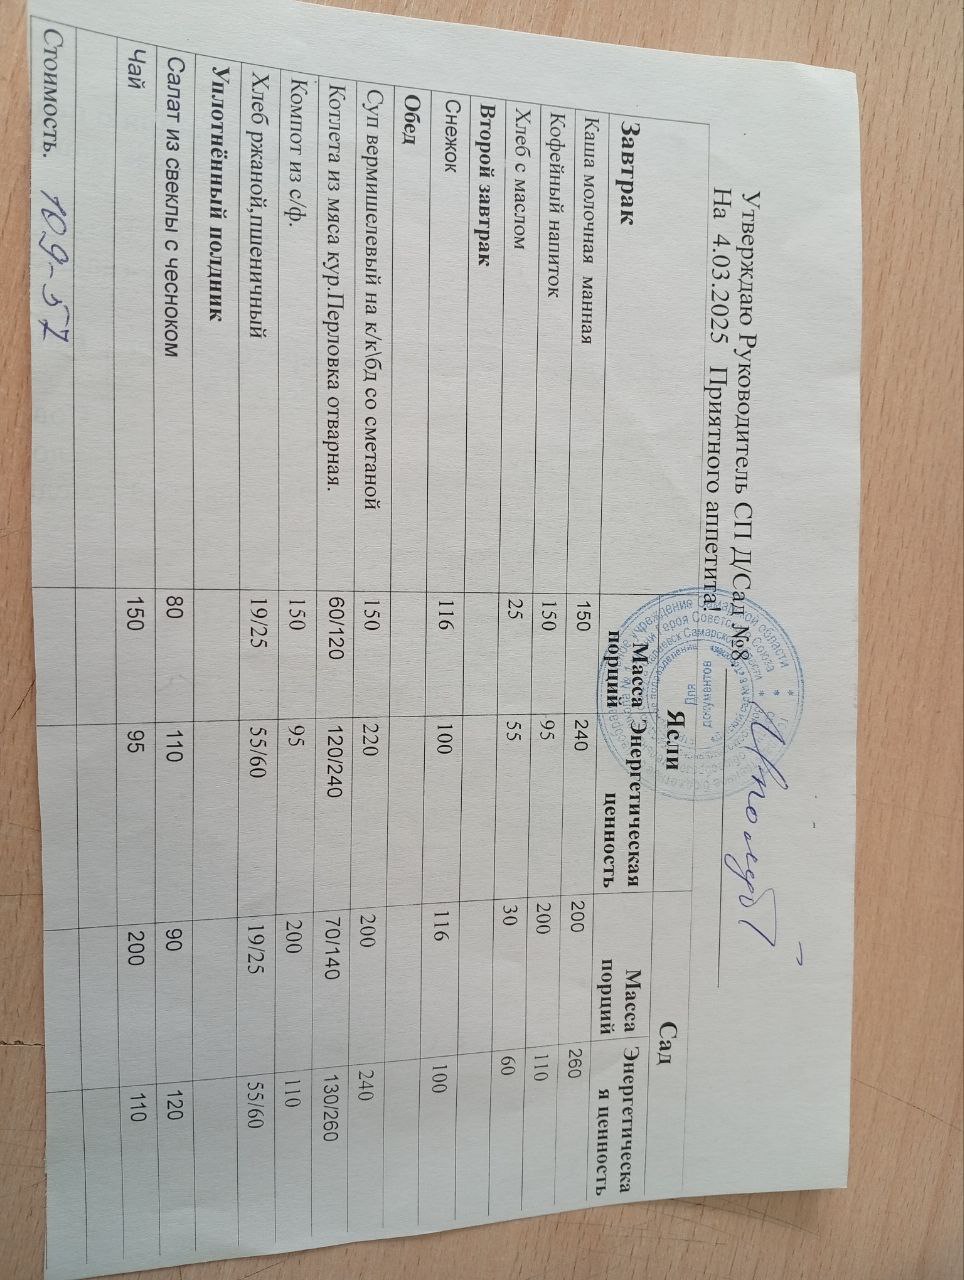 Утверждаю Руководитель СП Д/Сад №8
На 4.03.2025 Приятного аппетита!
Ясли Сад
Завтрак Масса порций Энергетическая ценность Масса порций Энергетическа я ценность
Каша молочная манная 150 240 200 260
Кофейный напиток 150 95 200 110
Хлеб с маслом 25 55 30 60
Второй завтрак
Снежок 116 100 116 100
Обед
Суп вермишелевый на к/к\бд со сметаной 150 220 200 240
Котлета из мяса кур.Перловка отварная. 60/120 120/240 70/140 130/260
Компот из с/ф. 150 95 200 110
Хлеб ржаной,пшеничный 19/25 55/60 19/25 55/60
Уплотнённый полдник
Салат из свеклы с чесноком 80 110 90 120
Чай 150 95 200 110
Стоимость. 109-57
Для
документов